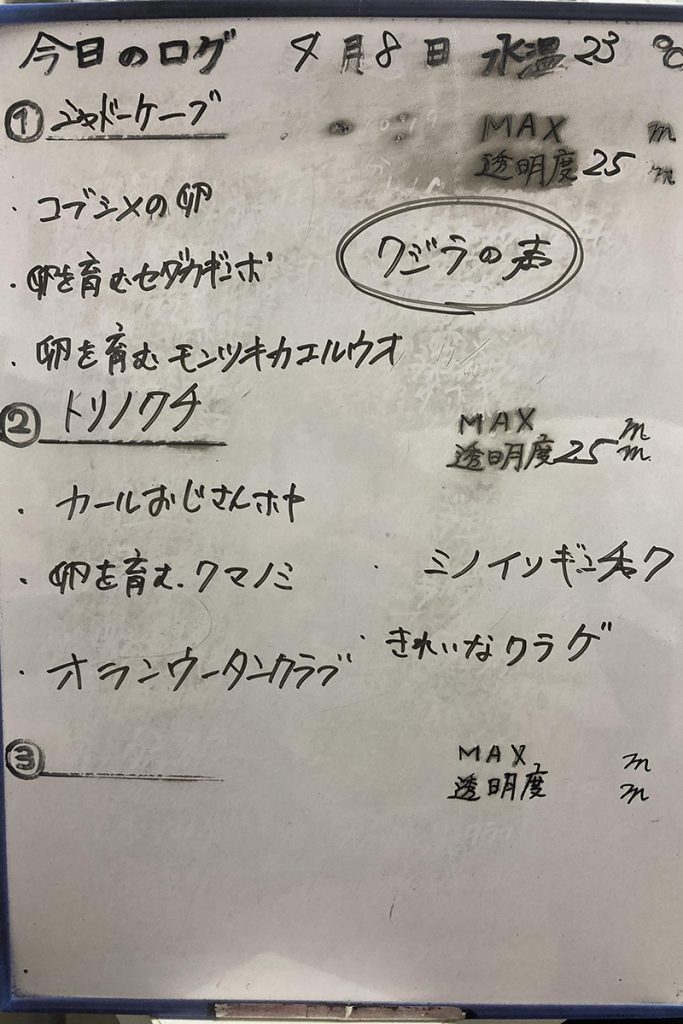 今日のログ 4月8日 水温23℃
① シャドーケーブ
MAX m
透明度25m
・コブシメの卵
クジラの声
・卵を育むセダカギンポ
・卵を育むモンツキカエルウオ
② トリノクチ
MAX m
透明度25m
・カールおじさんホヤ
・卵を育む.クマノミ
・ミノイソギンチャク
・オランウータンクラブ
・きれいなクラゲ
③
MAX m
透明度 m